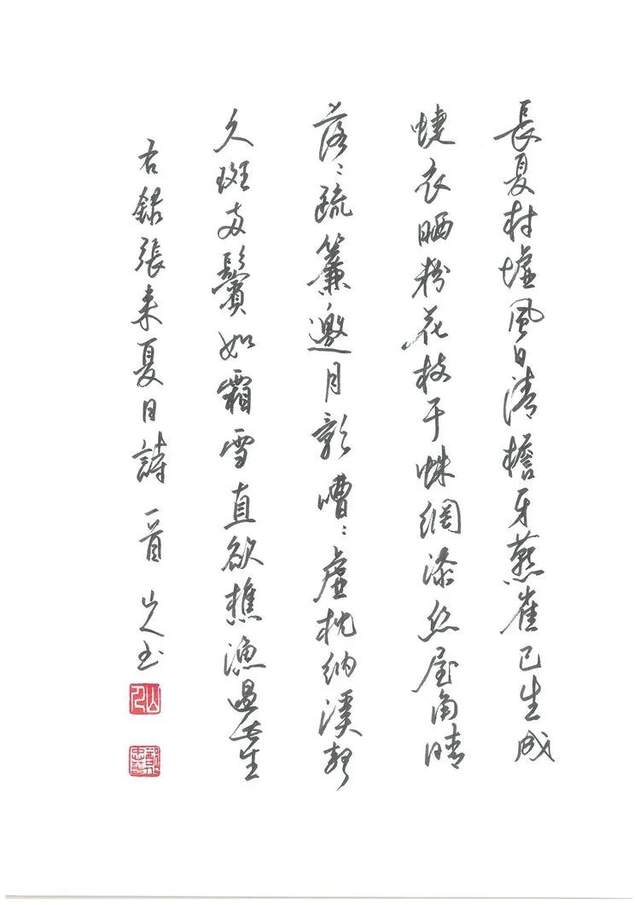 長夏村墟風日清檐牙燕雀已生成
蜨衣晒粉花枝干蛛網添丝屋角晴
落〻疏簾邀月影嘈〻虛枕納溪聲
久斑兩鬢如霜雪直欲樵漁過此生
右録張耒夏日詩一首 山人书
山人